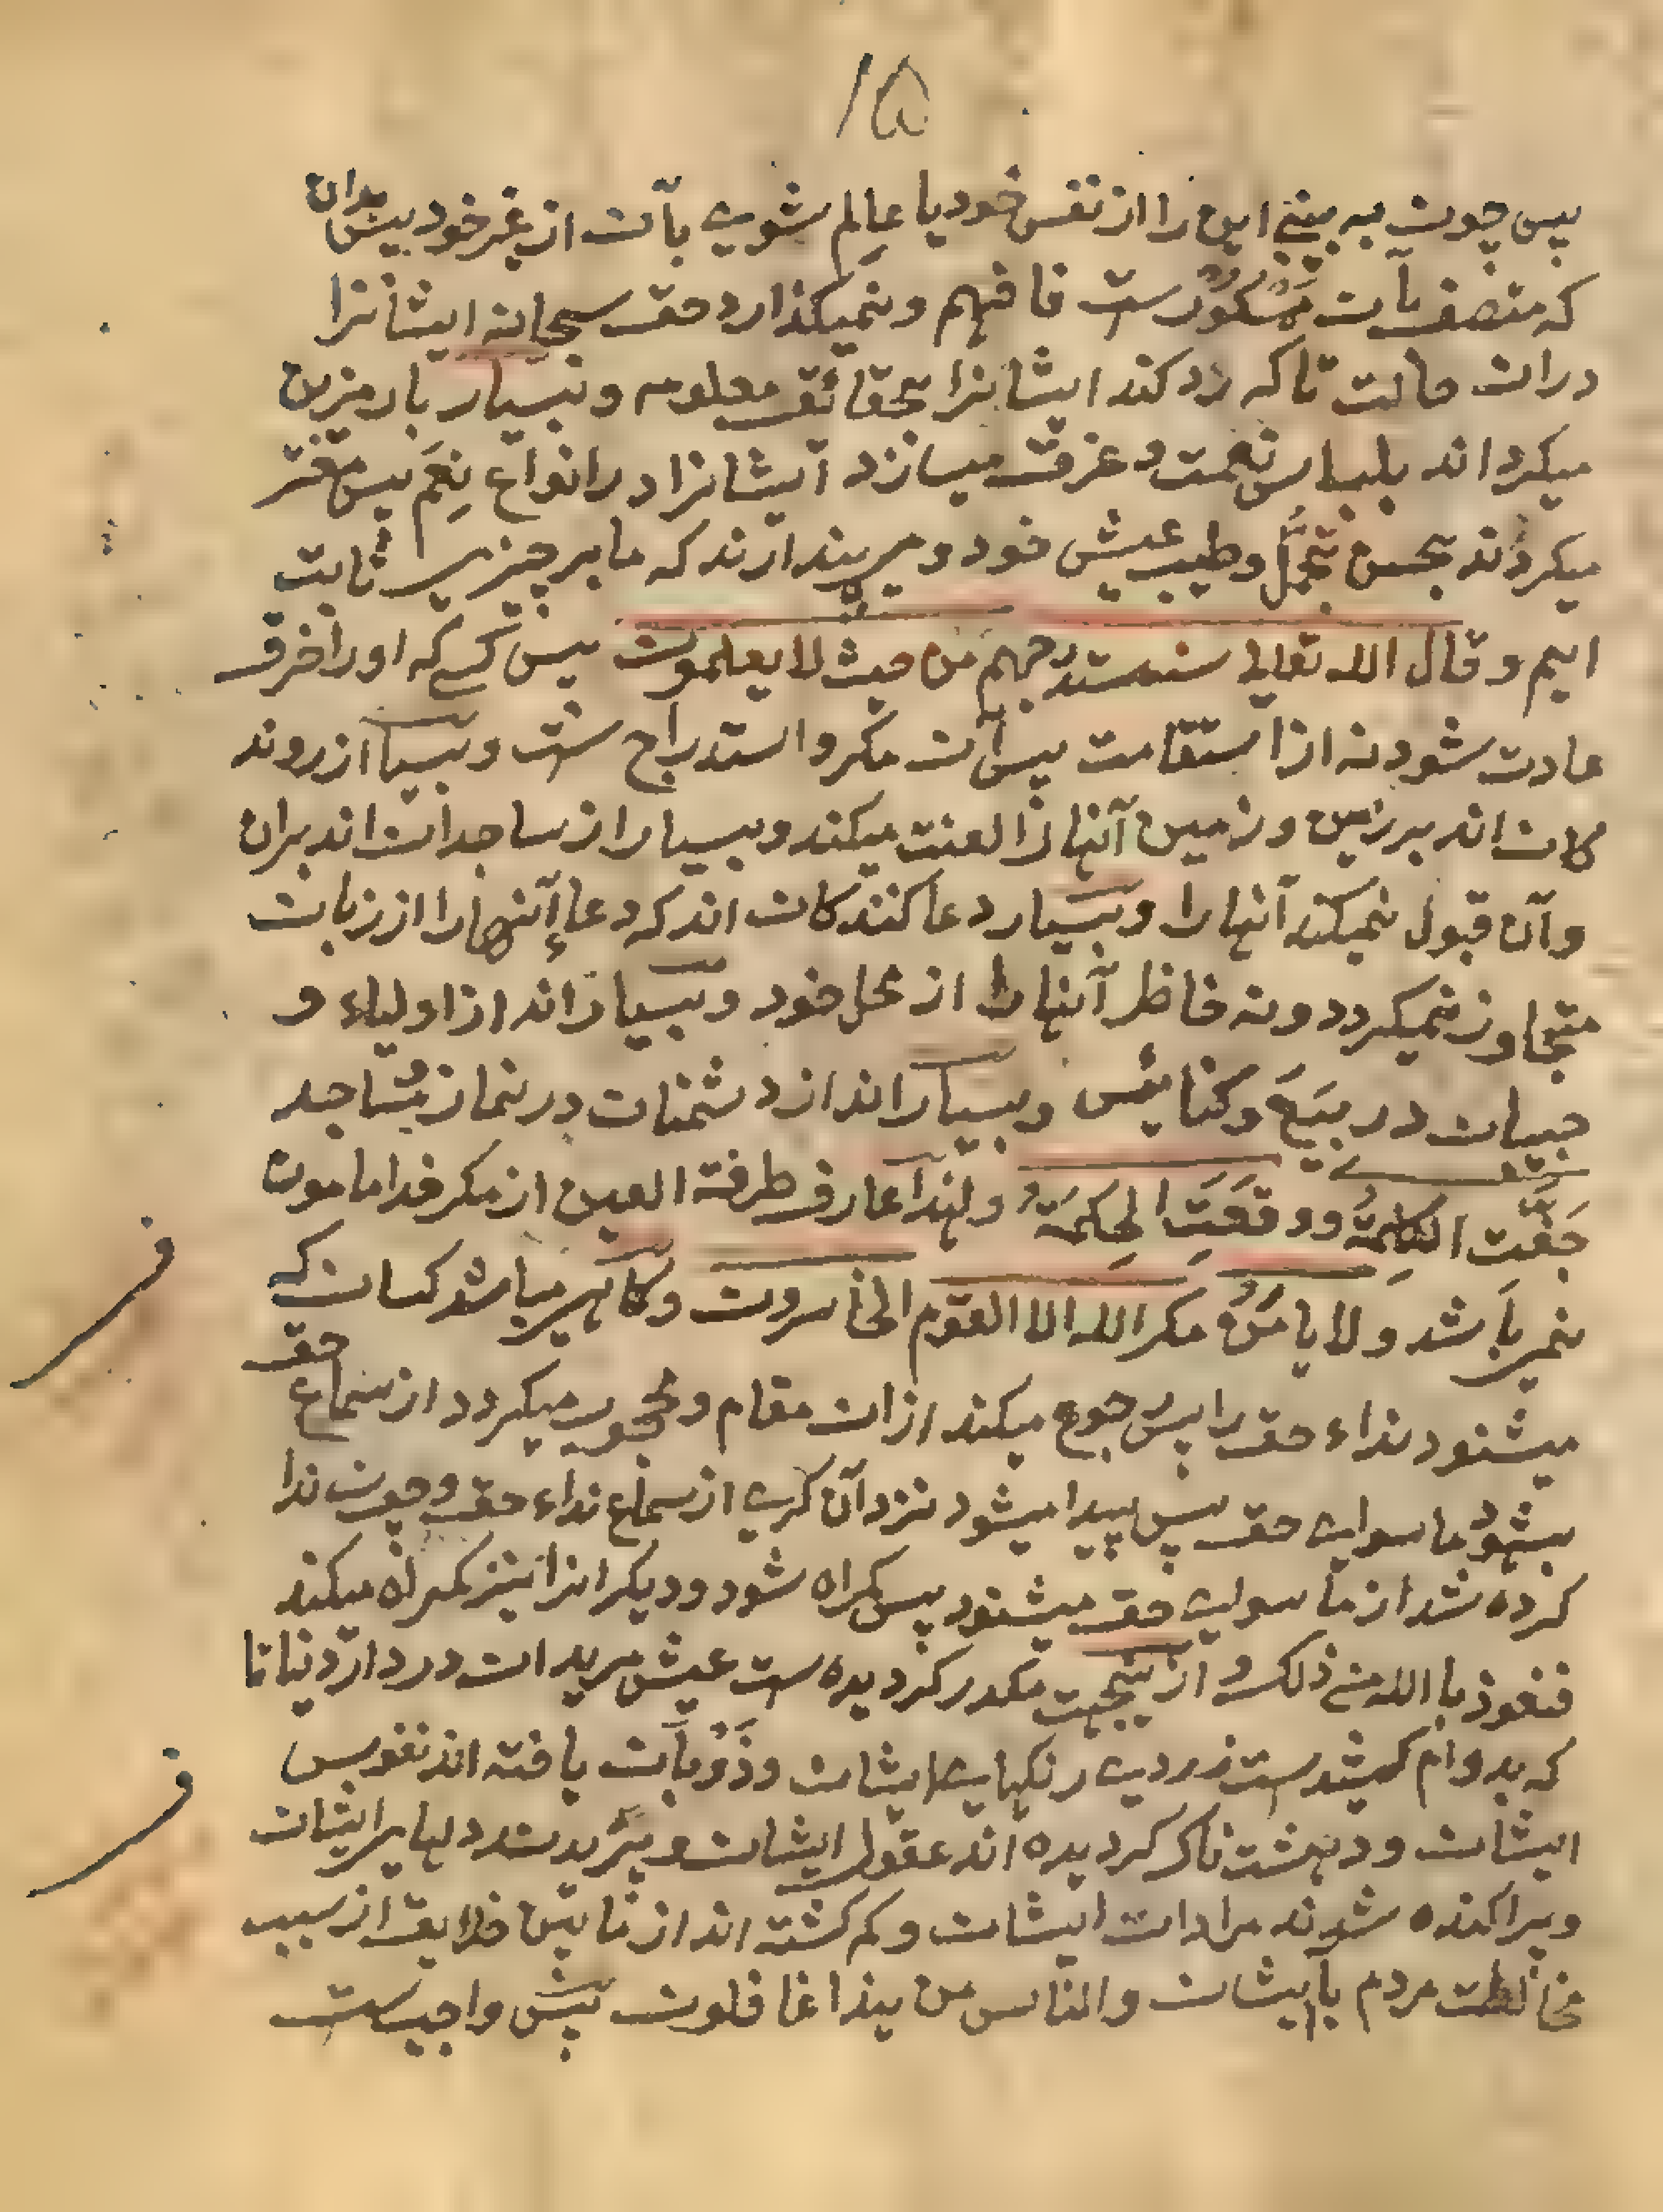 ۱۵
پس چون به بینے این را از نفس خود یا عالم شوی بآن از غیر خود پس بدان
که متصف بآن ممکورست فافهم و نمیکذارد حق سبحانه ایشانرا
دران حالت تا که رد کند ایشانرا بحقائق معلومه و بسیار بار مزین
میکرداند بلباس نعمت و غرق میسازد ایشانرا در انواع نِعَم پس مغتر
میکردند بحسن تجمّل و طیب عیش خود و می پندارند که ما بر چیزی ثابت
ایم و قال الله تعالی سنستدرجهم من حیث لا یعلمون پس کسے که او را خرق
عادت شود نه از استقامت پس آن مکر و استدراج ست و بسیار از روند
کان اند بر زمین و زمین آنها را لعنت میکند و بسیار از ساجدان اند بران
و آن قبول نمیکند آنها را و بسیار دعا کنند کان اند که دعاء آنها را از زبان
متجاوز نمیکردد و نه خاطر آنها را از محل خود و بسیار اند از اولیاء و
حبیبان در بیَع و کنایس و بسیار اند از دشمنان در نماز و مساجد
حَقَّت الکلمةُ و وقعَت الحِکمَةُ و لهذا عارف طرفة العین از مکر خدا مامون
نمی باشد و لا یامَنُ مکر الله الا القوم الخاسرون و کاهی میباشد کسان که
میشنود نداء حق را پس رجوع میکند ازان مقام و محجوب میکردد از سماع حق
بشهود ماسوای حق پس پیدا میشود نزد آن کری از سماع نداء حق و چون ندا
کرده شد از ماسوای حق میشنود پس کمراه شود و دیکرانرا نیز کمراه میکند
فنعوذ بالله من ذلک و ازینجهت مکدر کردیده ست عیش مریدان در دار دنیا تا
که بدوام کشیدست زردی رنکهای ایشان و ذَوَبان یافته اند نفوس
ایشان و دهشت ناک کردیده اند عقول ایشان و پریدند دلهای ایشان
و پراکنده شوند مرادات ایشان و کم کشته اند از مابین خلایق از سبب
مخالطت مردم بایشان و الناس من هذا غافلون پس واجبست
ف
ف